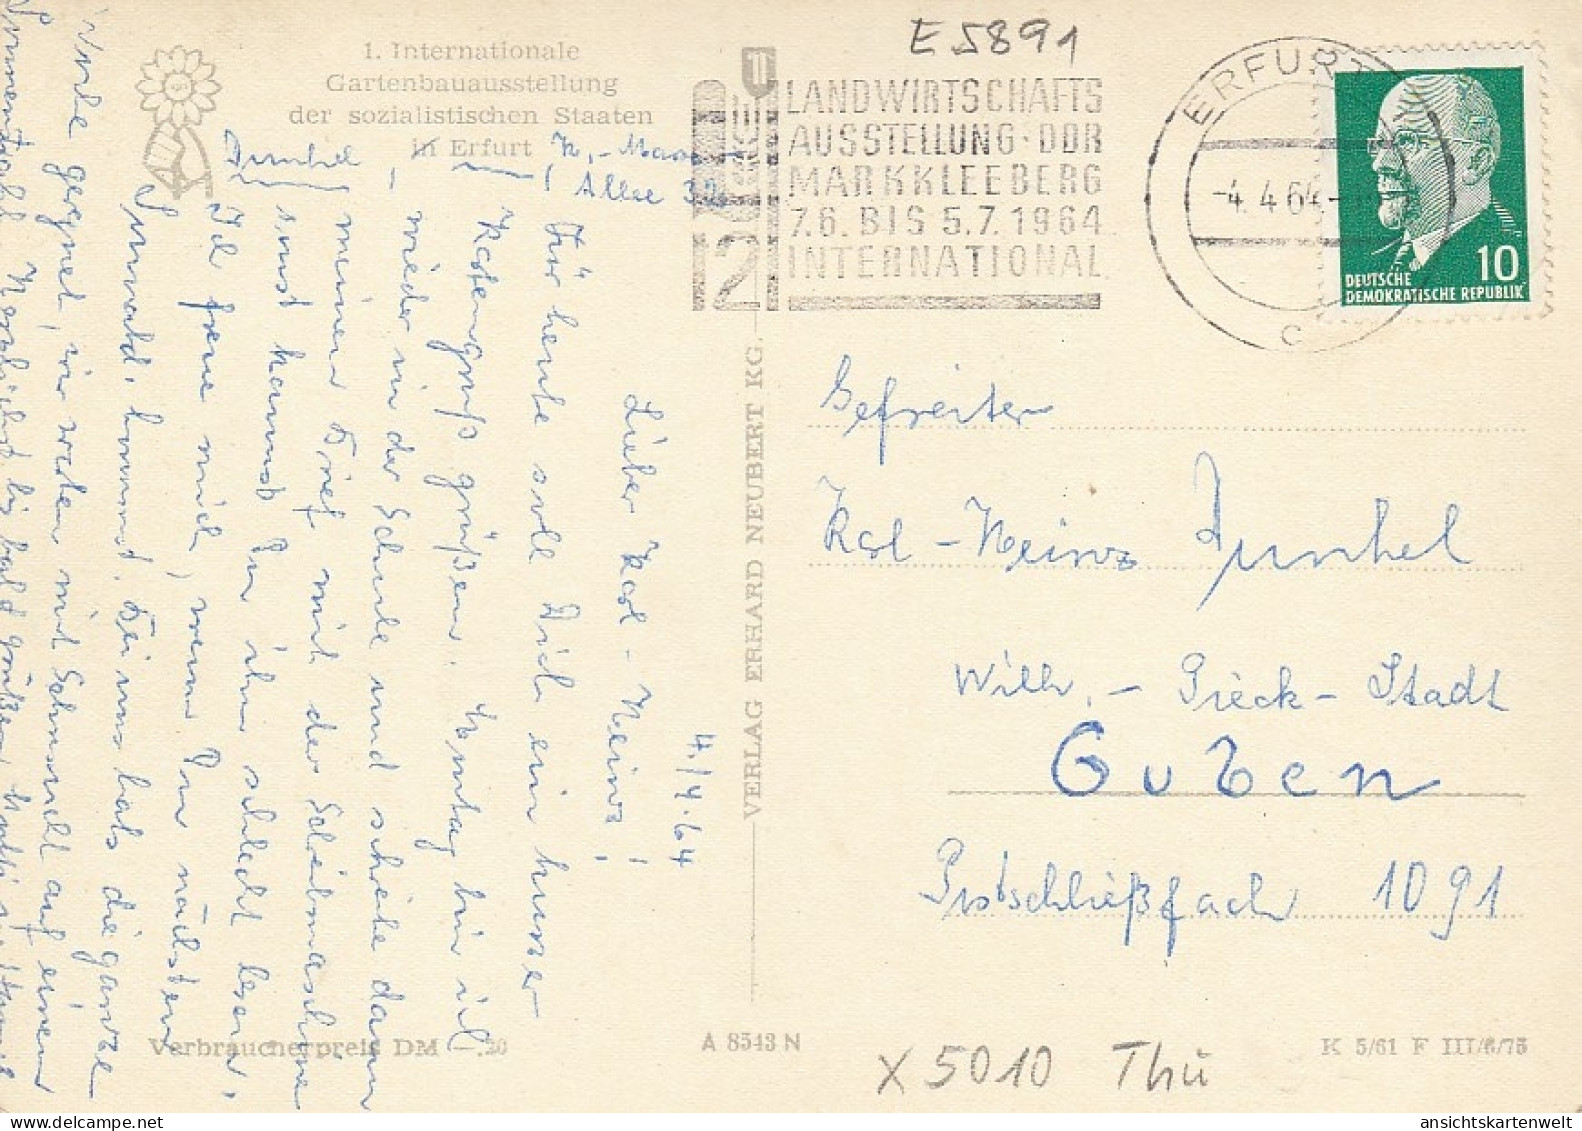 E 5891
1. Internationale
Gartenbauausstellung
der sozialistischen Staaten
in Erfurt
LANDWIRTSCHAFTS
AUSSTELLUNG · DDR
MARKKLEEBERG
7.6. BIS 5.7.1964
INTERNATIONAL
ERFURT
-4.4.64-
c
10
DEUTSCHE
DEMOKRATISCHE REPUBLIK
Kunkel
Allee 32
4./4.64
Lieber Karl-Heinz!
Für heute soll Dich ein kurzer
Kartengruß grüßen. Montag bin ich
wieder in der Schule und schreibe dann
meinen Brief mit der Schreibmaschine
sonst kannst Du ihn schlecht lesen.
Ich freue mich, wenn Du nächsten
Sonnabend kommst. Bei uns hat's die ganze
Woche geregnet, wir warten mit Sehnsucht auf einen
Sonnenstrahl. Herzlichst bis bald grüßen
Gefreiter
Karl-Heinz Kunkel
Wilh.-Pieck-Stadt
Guben
Postschließfach 1091
VERLAG ERHARD NEUBERT KG.
Verbraucherpreis DM -.20
A 8543 N
K 5/61 F III/6/75
X 5010 Thü
ansichtskartenwelt